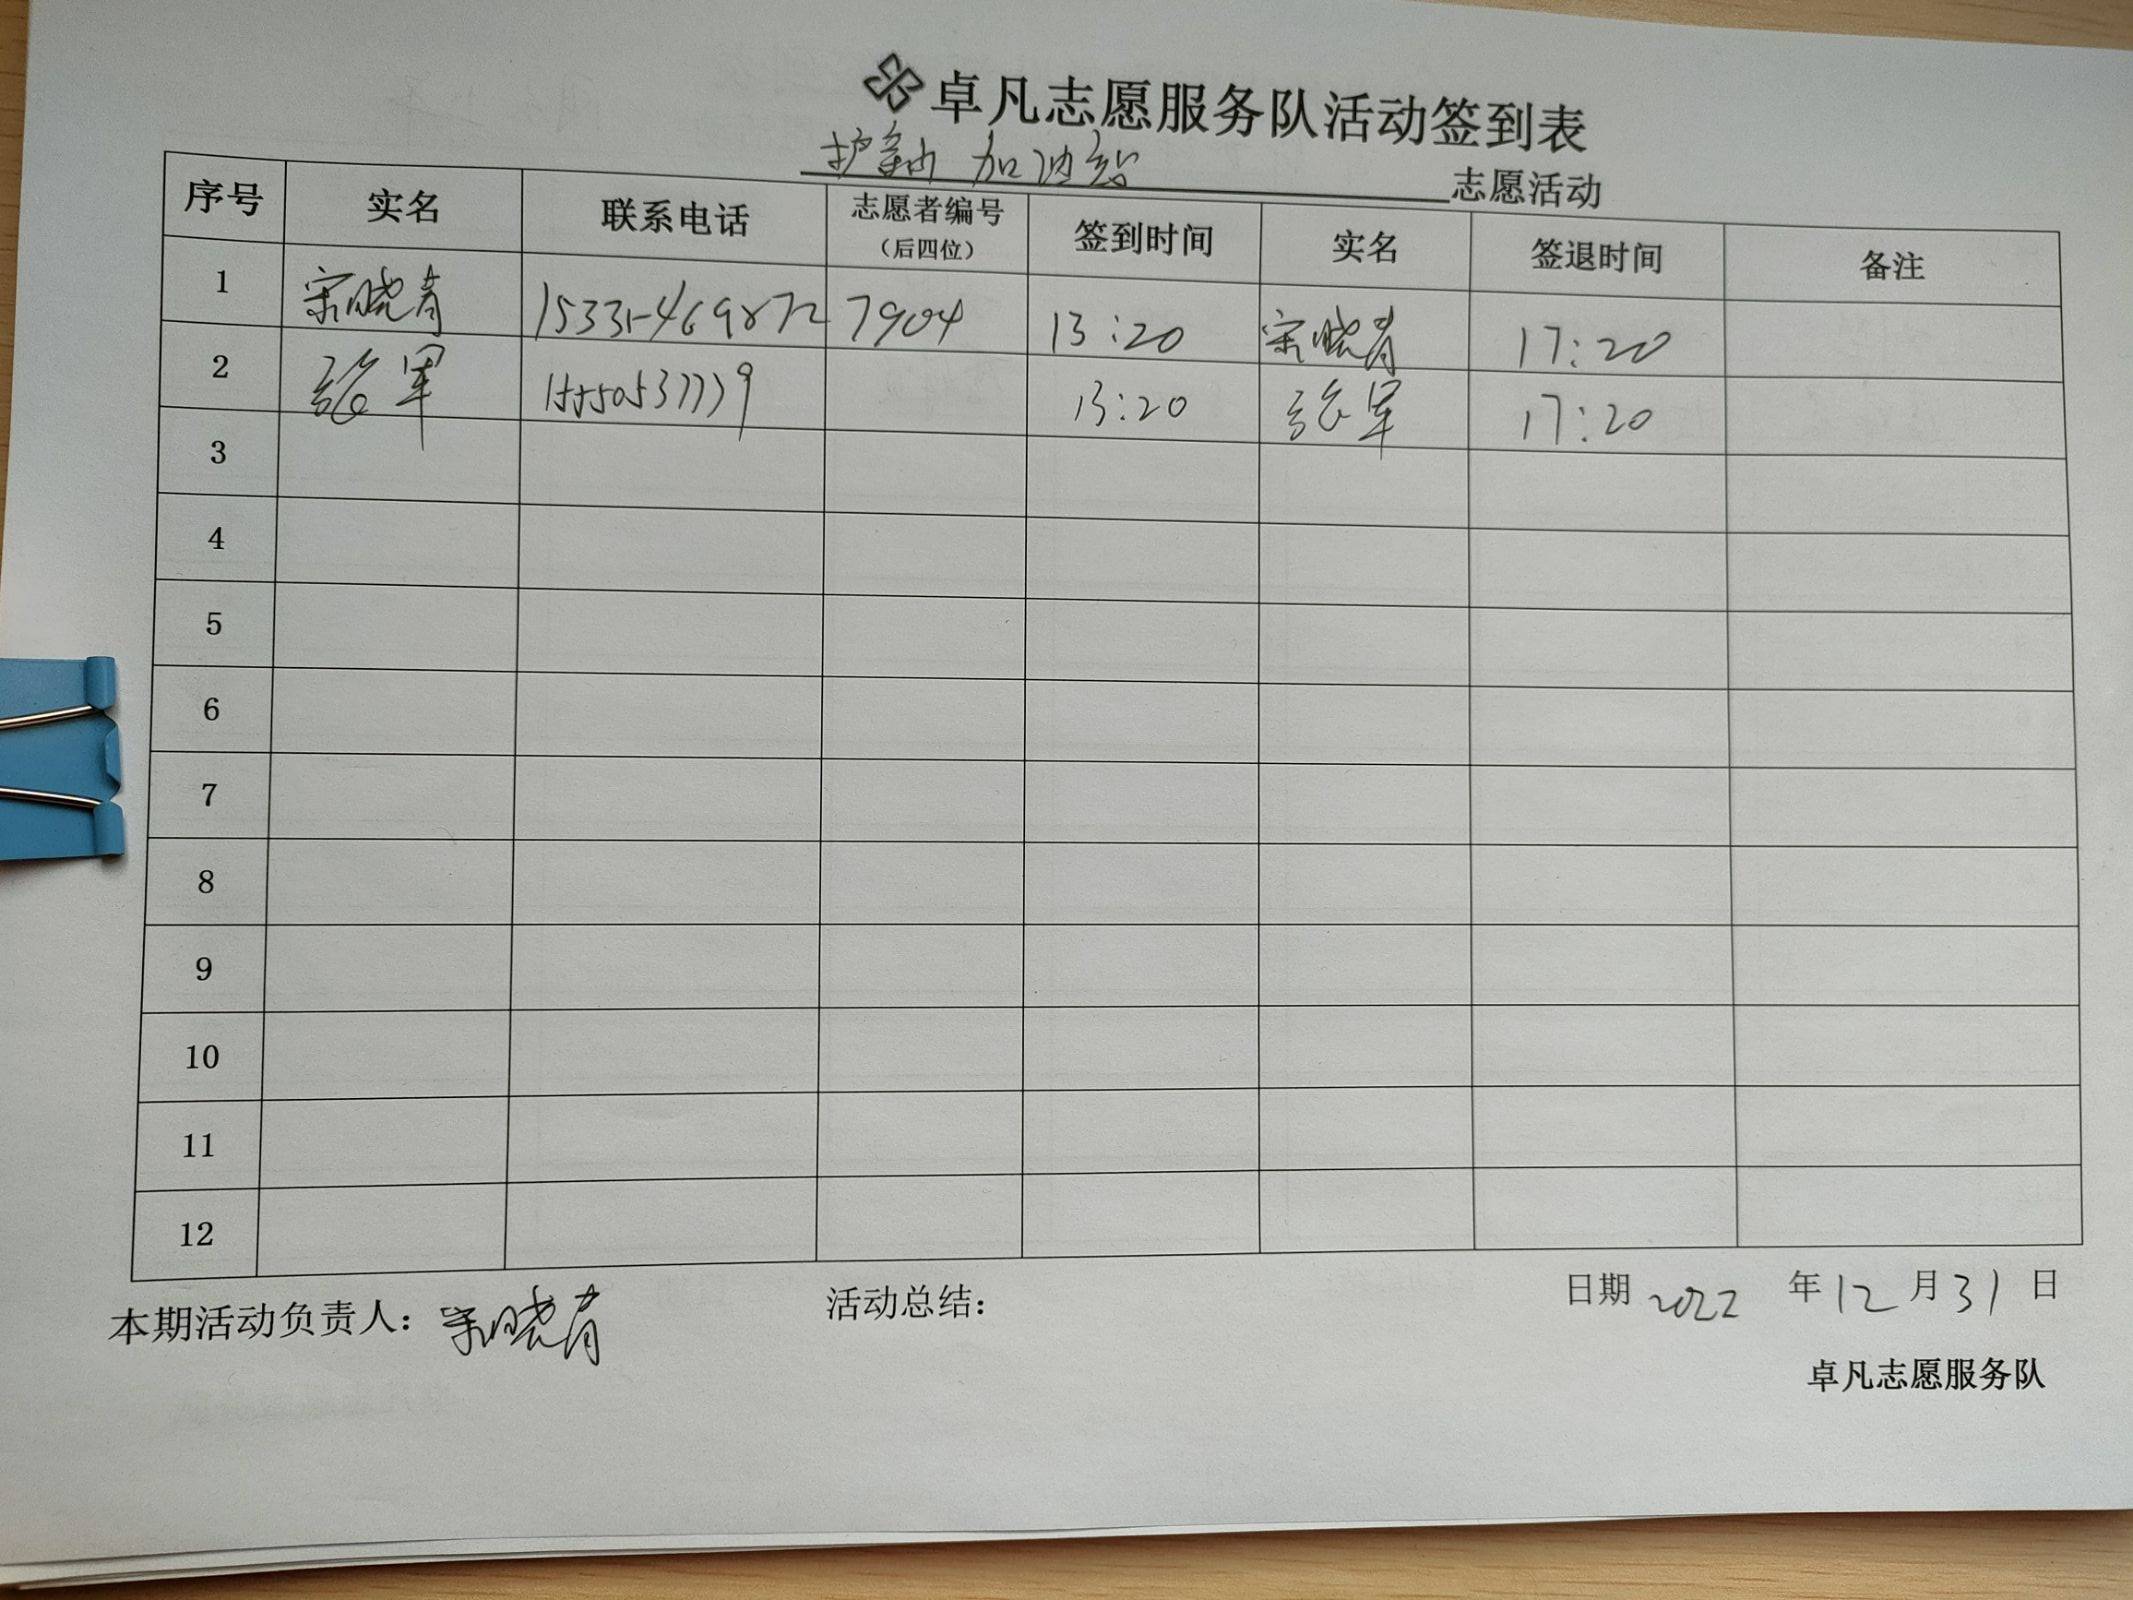 卓凡志愿服务队活动签到表
加油站 志愿活动
序号 实名 联系电话 志愿者编号（后四位） 签到时间 实名 签退时间 备注
1 宋晓青 7904 13:20 宋晓青 17:20
2 张军 13:20 张军 17:20
3
4
5
6
7
8
9
10
11
12
本期活动负责人：宋晓青 活动总结： 日期 2022 年 12 月 31 日
卓凡志愿服务队